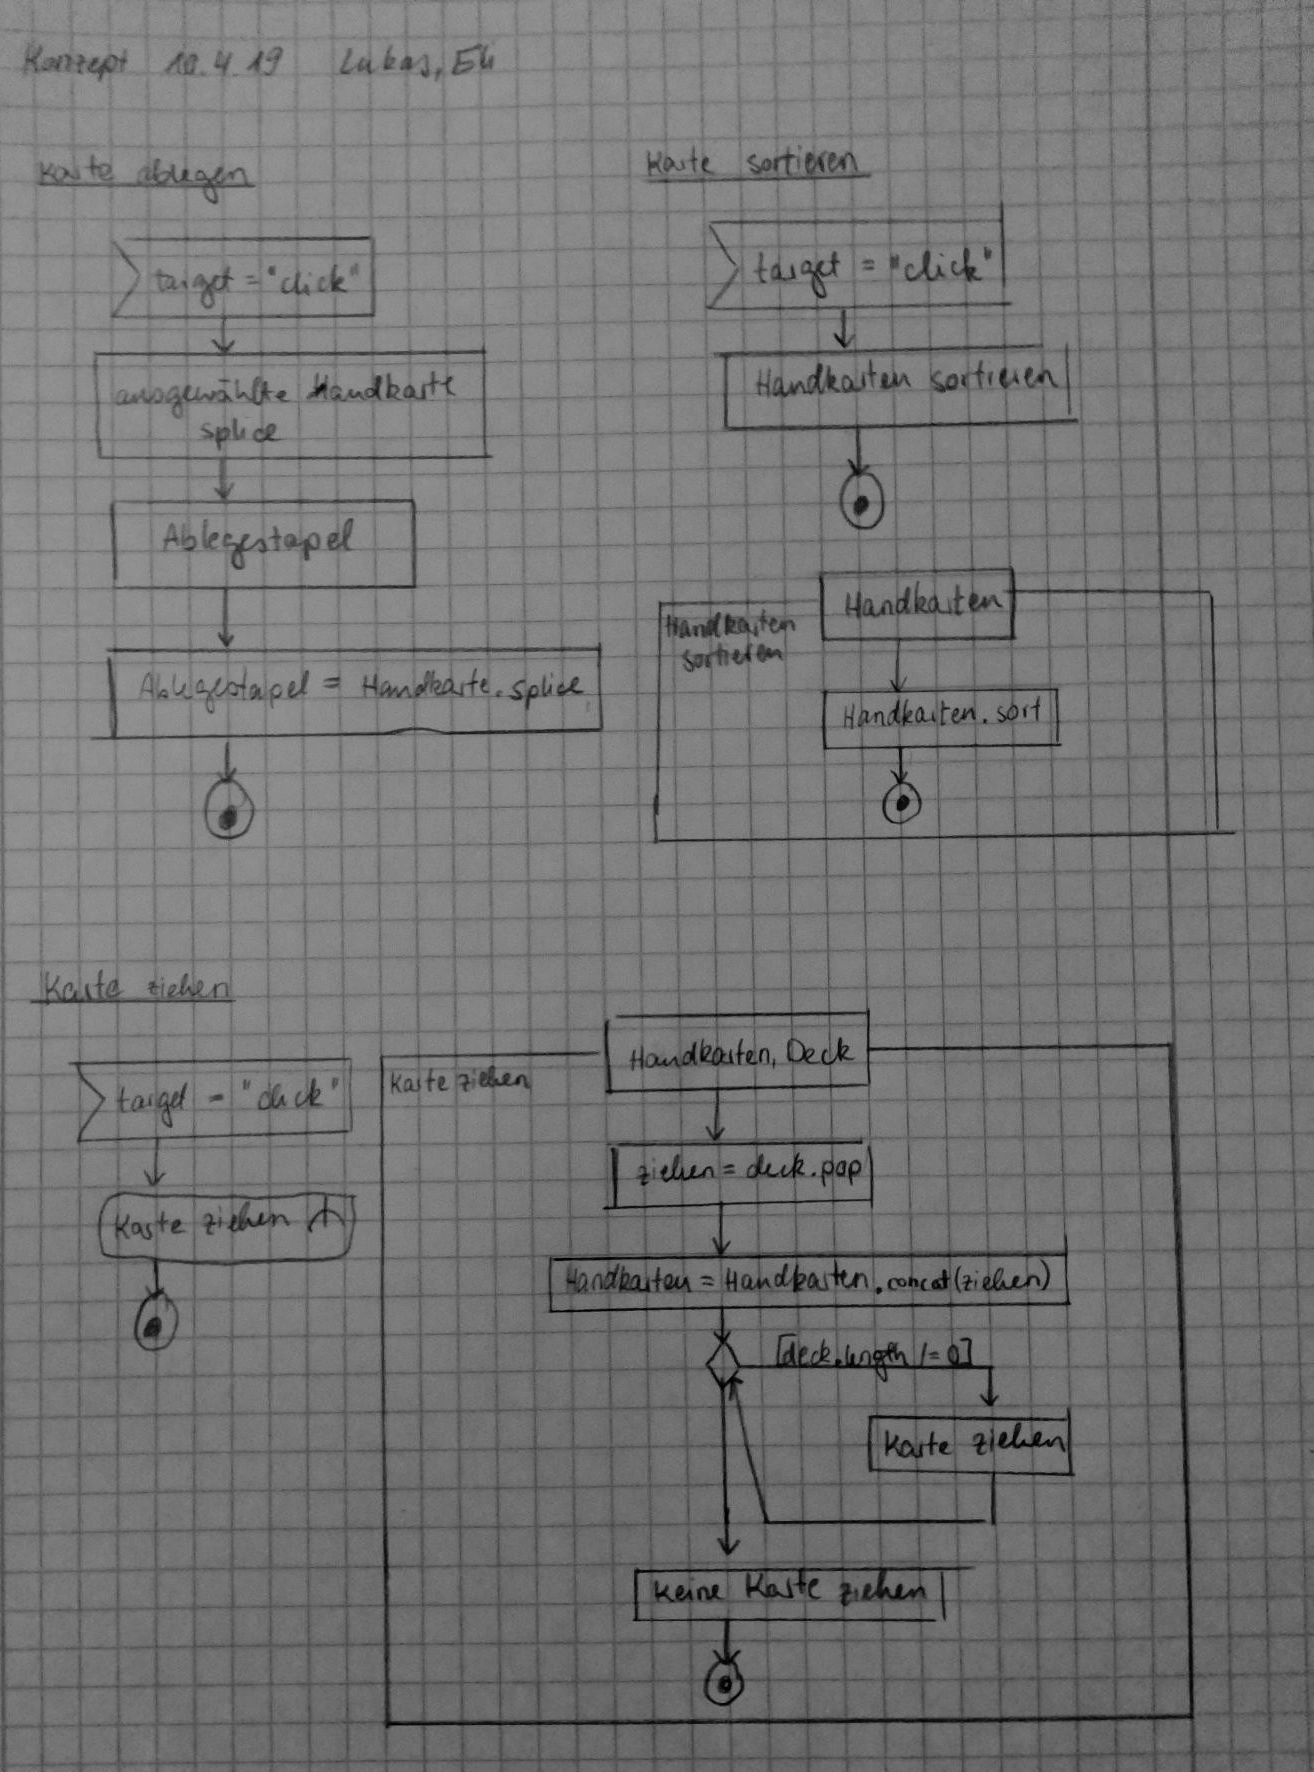 Konzept 10.4.19 Lukas, Eli
Karte ablegen
target = "click"
ausgewählte Handkarte
splice
Ablegestapel
Ablegestapel = Handkarte.splice
Karte sortieren
target = "click"
Handkarten sortieren
Handkarten
sortieren
Handkarten
Handkarten.sort
Karte ziehen
target = "click"
Karte ziehen
Karte ziehen
Handkarten, Deck
ziehen = deck.pop
Handkarten = Handkarten.concat(ziehen)
[deck.length != 0]
Karte ziehen
Keine Karte ziehen